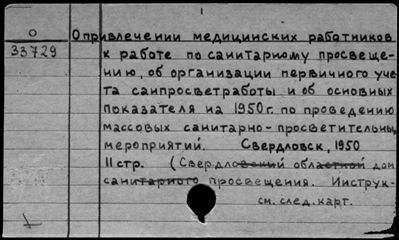 О привлечении медицинских работников
О
33729
к работе по санитарному просвеще-
нию, об организации первичного уче-
та санпросветработы и об основных
показателя на 1950 г. по проведению
массовых санитарно-просветительных
мероприятий. Свердловск, 1950
11 стр. (Свердловский областной дом
санитарного просвещения. Инструк-
см. след. карт.